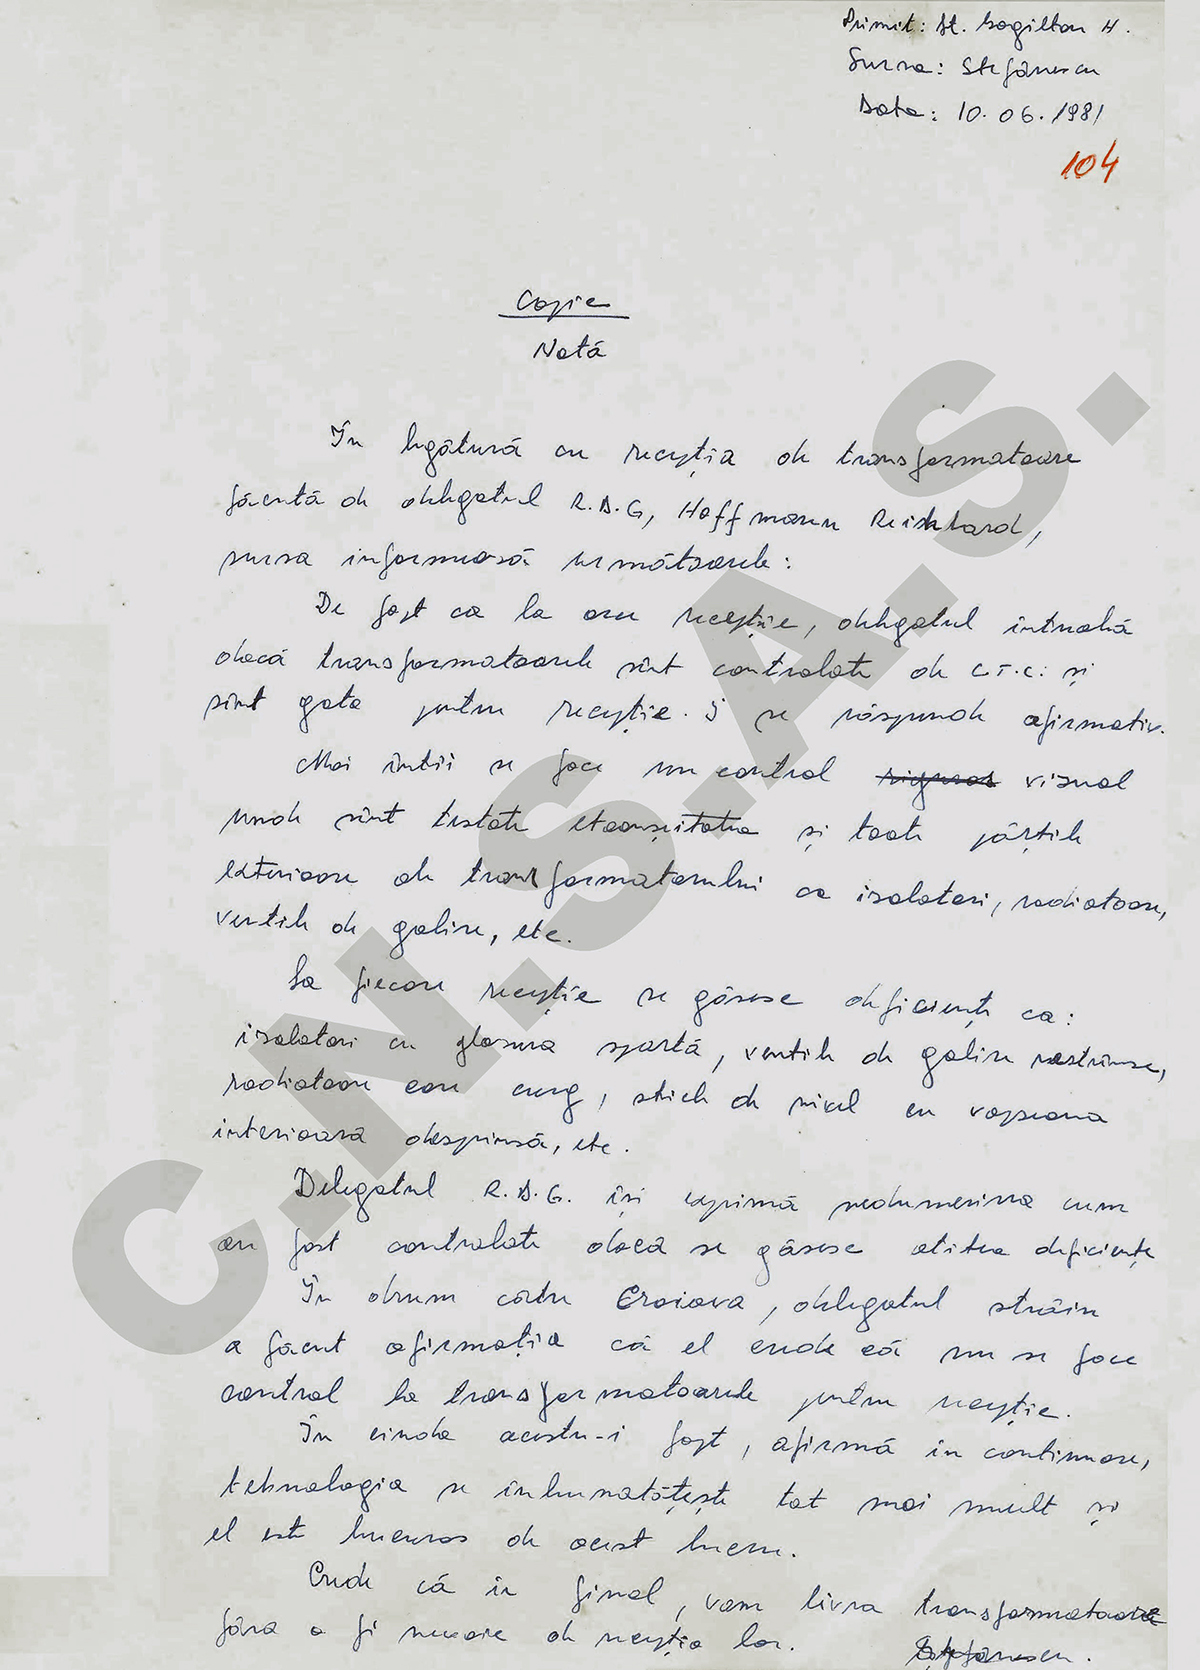 Primit: Lt. Gogiltan H.
Sursa: Ștefănescu
Data: 10.06.1981
104
Copie
Notă
În legătură cu recepția de transformatoare
făcută de delegatul R.D.G, Hoffmann Reichhard,
sursa informează următoarele:
De fapt ca la orice recepție, delegatul întreabă
dacă transformatoarele sînt controlate de C.T.C. și
sînt gata pentru recepție. I se răspunde afirmativ.
Mai întîi se face un control riguros vizual
unde sînt testate etanșeitatea și toate părțile
exterioare ale transformatorului ca izolatori, radiatoare,
ventile de golire, etc.
La fiecare recepție se găsesc deficiențe ca:
izolatori cu glasura spartă, ventile de golire nestrînse,
radiatoare care curg, sticle de nivel cu vopseaua
interioară desprinsă, etc.
Delegatul R.D.G. își exprimă nedumerirea cum
au fost controlate dacă se găsesc atîtea deficiențe
În drum către Craiova, delegatul străin
a făcut afirmația că el crede că nu se face
control la transformatoarele pentru recepție.
În ciuda acestu-i fapt, afirmă în continuare,
tehnologia se înbunatățește tot mai mult și
el este bucuros de acest lucru.
Crede că în final, vom livra transformatoare
fără a fi nevoie de recepția lor.
Ștefănescu.
C.N.S.A.S.